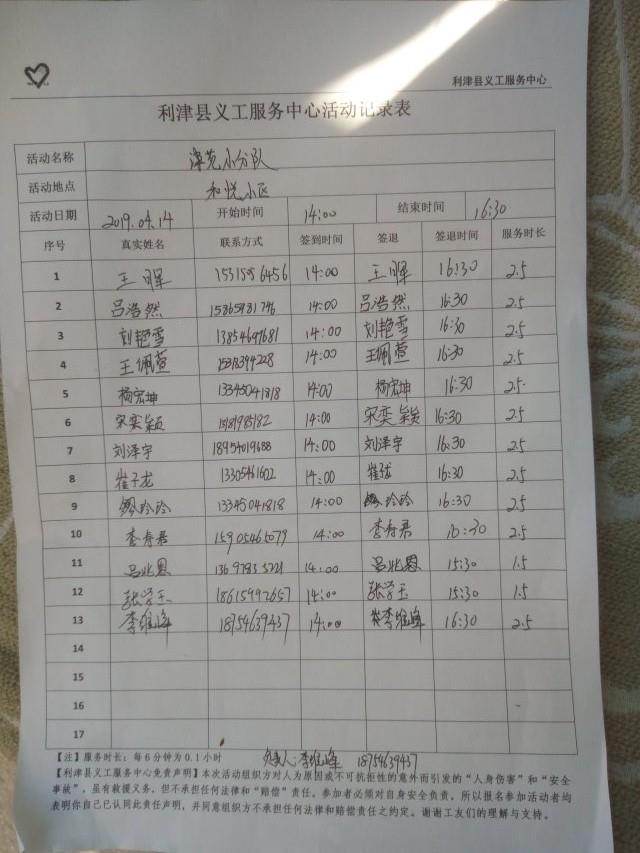 利津县义工服务中心
利津县义工服务中心活动记录表
活动名称 滦苑小分队
活动地点 和悦小区
活动日期 2019.04.14 开始时间 14:00 结束时间 16:30
序号 真实姓名 联系方式 签到时间 签退 签退时间 服务时长
1 王晖 14:00 王晖 16:30 2.5
2 吕浩然 14:00 吕浩然 16:30 2.5
3 刘艳雪 13854697681 14:00 刘艳雪 16:30 2.5
4 王佩萱 14:00 王佩萱 16:30 2.5
5 杨宏坤 13345041818 14:00 杨宏坤 16:30 2.5
6 宋奕颖 14:00 宋奕颖 16:30 2.5
7 刘泽宇 18954019688 14:00 刘泽宇 16:30 2.5
8 崔子龙 13305461602 14:00 16:30 2.5
9 玲玲 13345041818 14:00 玲玲 16:30 2.5
10 李寿君 15905465079 14:00 李寿君 16:30 2.5
11 吕兆恩 14:00 吕兆恩 15:30 1.5
12 张学玉 18615992657 14:00 张学玉 15:30 1.5
13 李维峰 18754639437 14:00 李维峰 16:30 2.5
14
15
16
17
【注】服务时长：每6分钟为0.1小时 负责人:李维峰 18754639437
【利津县义工服务中心免责声明】本次活动组织方对人为原因或不可抗拒性的意外而引发的“人身伤害”和“安全
事故”，虽有救援义务，但不承担任何法律和“赔偿”责任。参加者必须对自身安全负责，所以报名参加活动者均
表明你自己已认同此责任声明，并同意组织方不承担任何法律和赔偿责任之约定。谢谢工友们的理解与支持。